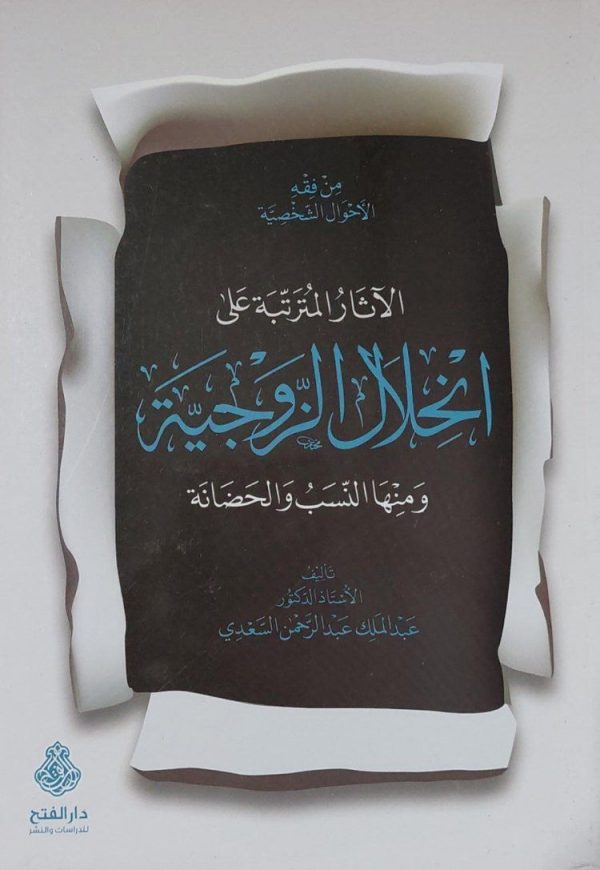 مِنْ فِقْهِ
الأَحْوَالِ الشَّخْصِيَّة
الآثَارُ المُتَرَتِّبَة عَلَى
انْحِلَالِ الزَّوْجِيَّة
وَمِنْهَا النَّسَبُ وَالحَضَانَة
تَأليفُ
الأُسْتَاذ الدكتُور
عَبْد المَلِك عَبْد الرَّحْمٰن السَّعْدِي
دار الفتح
للدراسات والنشر